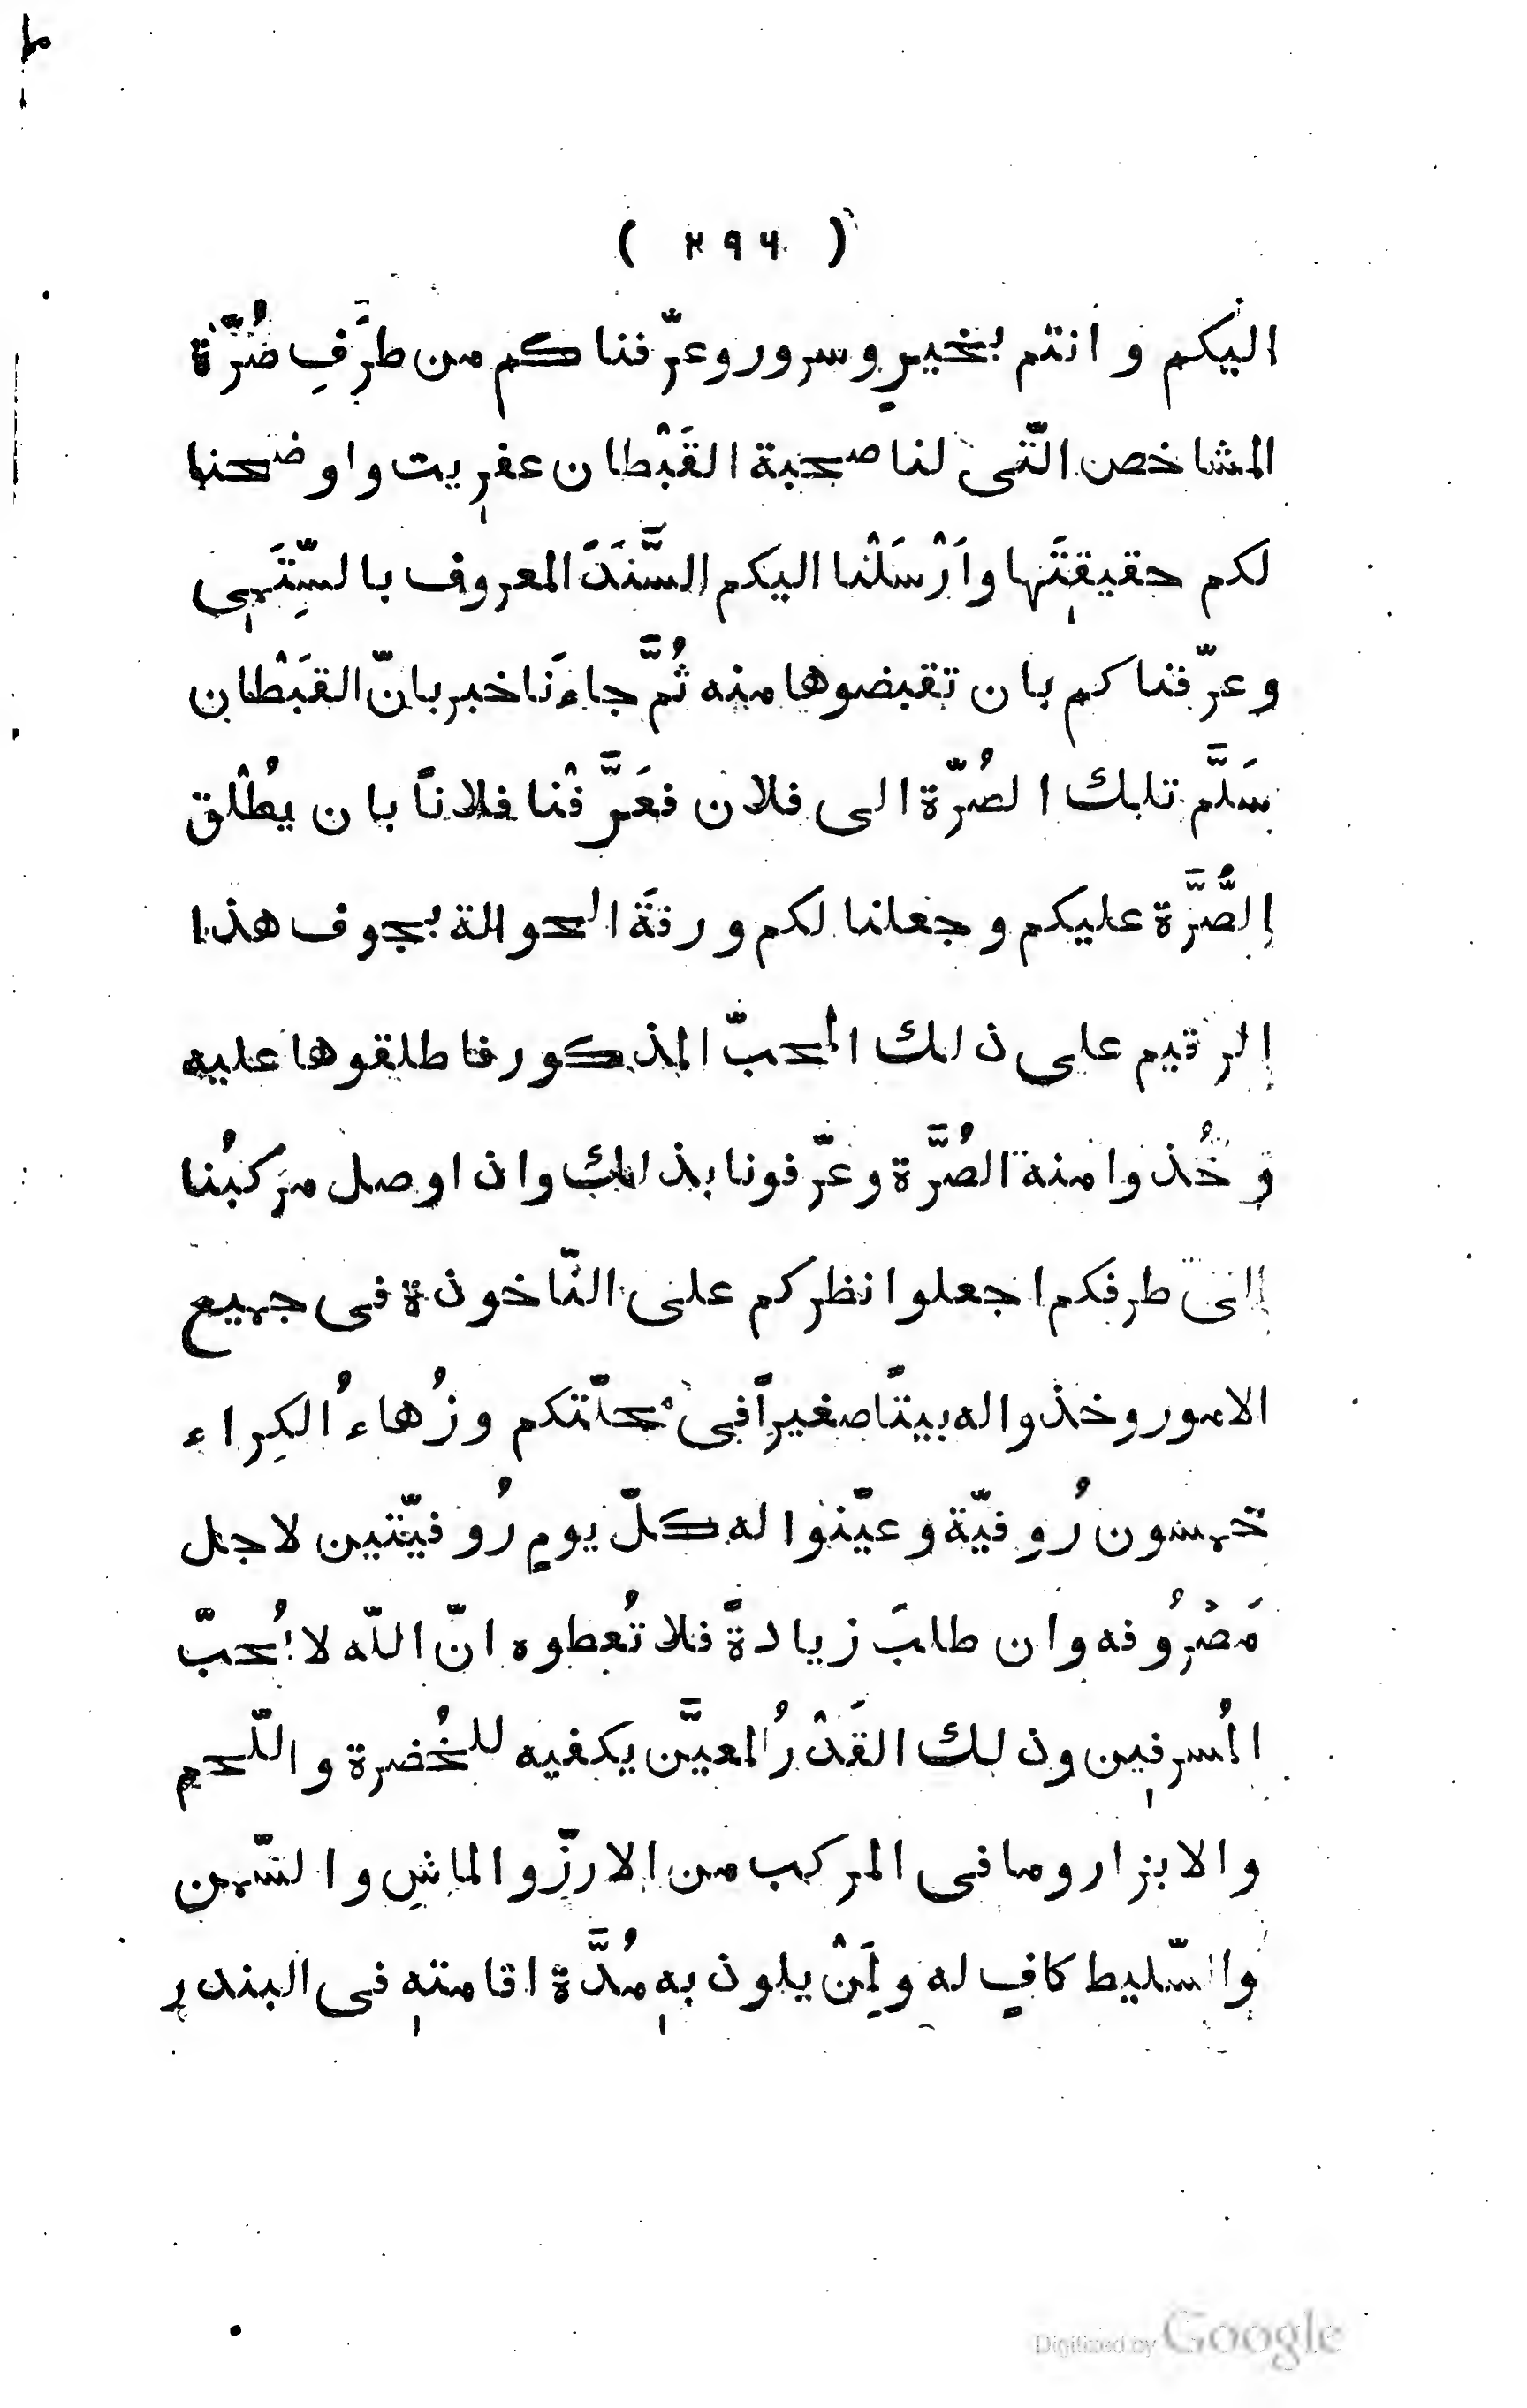 ( ٢٩٦ )
اليكم وانتم بخيرٍ وسرور وعرّفناكم من طرَفِ صُرّة
المشاخص الّتى لنا صحبة القَبْطان عفرِيت واوضحنا
لكم حقيقتَها واَرْسَلْنا اليكم السَّنَدَ المعروف بالسِّتَمِى
وعرّفناكم بان تقبضوها منه ثُمَّ جاءَنا خبر بانّ القَبْطان
سَلَّم تلك الصُرّة الى فلان فعَرَّفْنا فلاناً بان يُطْلق
الصُّرَّة عليكم وجعلنا لكم ورقةَ الحوالة بجوف هذا
الرقيم على ذلك المحبّ المذكور فاطلقوها عليه
وخُذوا منه الصُرَّة وعرّفونا بذلك واذا وصل مركبُنا
الى طرفكم اجعلوا نظركم على النّاخوذة فى جميع
الامور وخذوا له بيتًا صغيراً فى محلّتكم وزُهاءُ الكِراء
خمسون رُوفيّة وعيّنوا له كلّ يومٍ رُوفيّتين لاجل
مَصْرُوفه وان طلبَ زيادةً فلا تُعطوه انّ اللّه لا يُحبّ
المُسرفِين وذلك القَدْرُ المعيَّن يكفيه للخُضرة واللّحم
والابزار وما فى المركب من الارزّ والماشِ والسّمن
والسّليط كافٍ له ولِمَنْ يلوذ بهِ مُدَّة اقامتهِ فى البندر
Digitized by Google